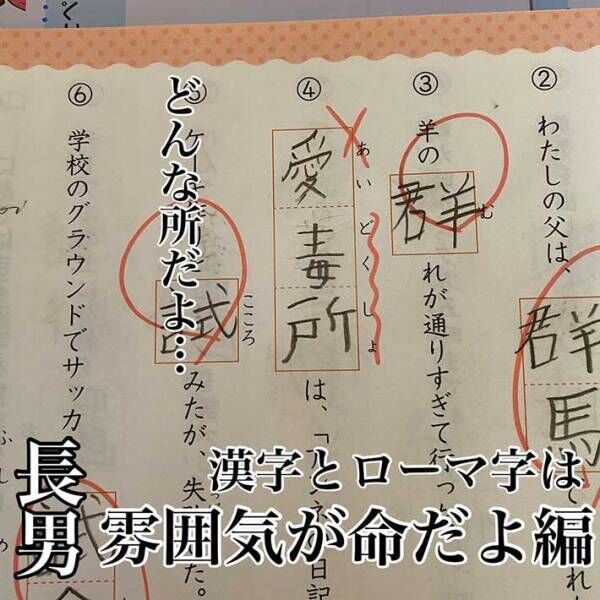 ②
わたしの父は、群馬
③
羊の群れが通りすぎて行っ
む
④
愛毒所は、「アンネ 日記
あいどくしょ
どんな所だよ…
試みたが、失 た。
こころ
⑥
学校のグラウンドでサッカ
漢字とローマ字は
長男
雰囲気が命だよ編